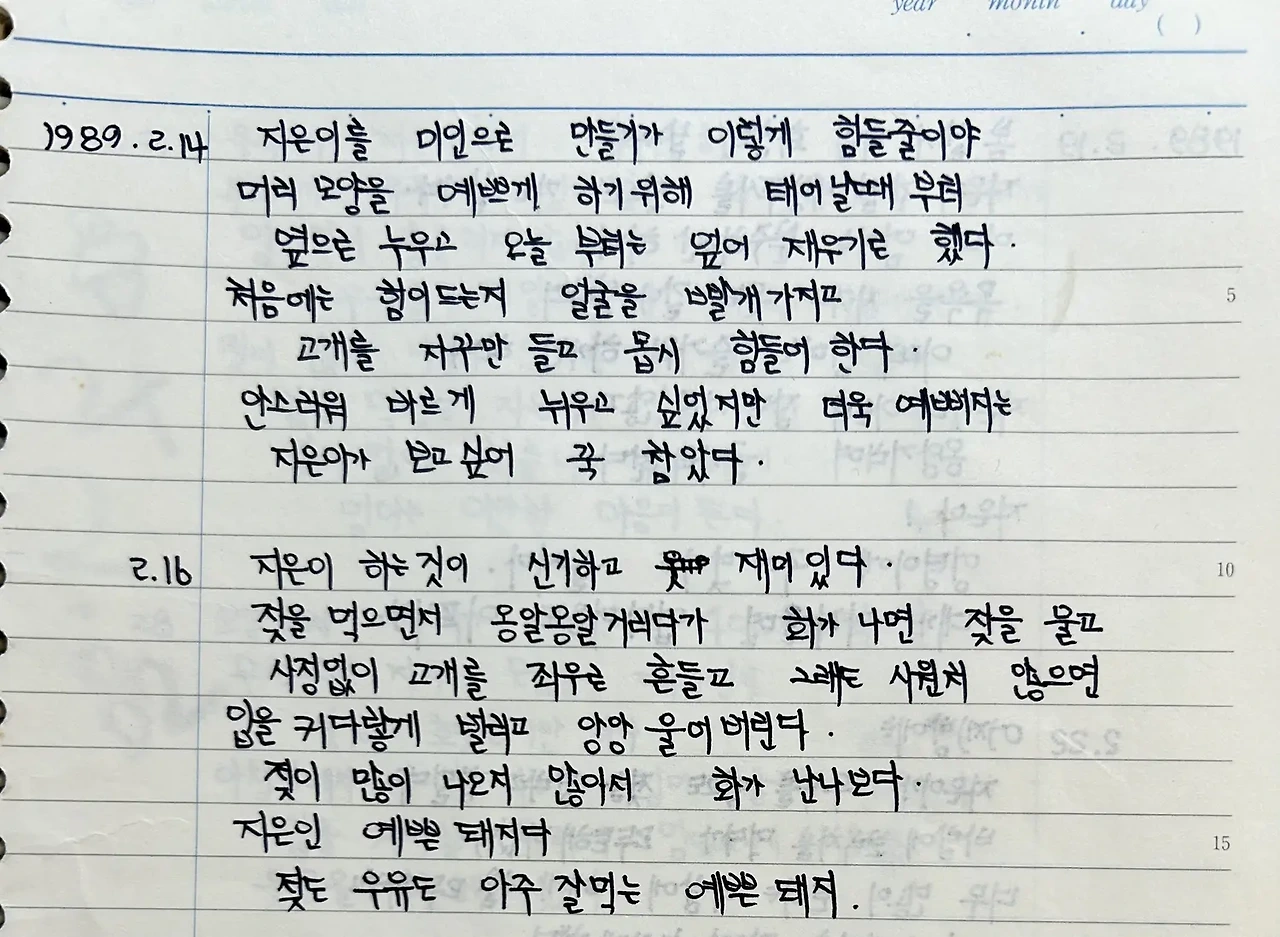 year month day
( )
1989. 2. 14 지은이를 미인으로 만들기가 이렇게 힘들줄이야
머리 모양을 예쁘게 하기위해 태어날때 부터
옆으로 누우고 오늘 부터는 엎어 재우기로 했다.
처음에는 힘이드는지 얼굴을 빨갛게가지고
고개를 자꾸만 들고 몹시 힘들어 한다.
안스러워 바르게 뉘우고 싶었지만 더욱 예뻐지는
지은아가 보고싶어 꾹 참았다.
2.16 지은이 하는것이 신기하고 재미있다.
젖을 먹으면서 옹알옹알거리다가 화가 나면 젖을 물고
사정없이 고개를 좌우로 흔들고 그래도 시원치 않으면
입을 커다랗게 벌리고 앙앙 울어버린다.
젖이 많이 나오지 않아서 화가 난나보다.
지은인 예쁜 돼지다
젖도 우유도 아주 잘먹는 예쁜 돼지.
5
10
15